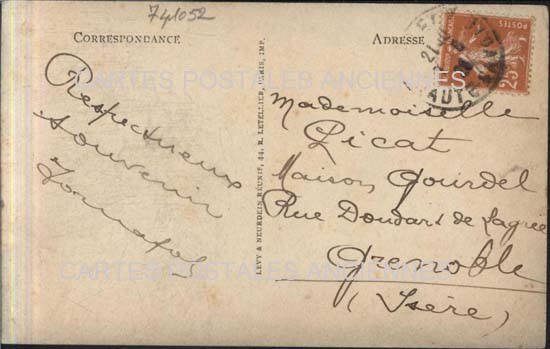 741052
CORRESPONDANCE
ADRESSE
Respectueux
souvenir
LEVY & NEURDEIN RÉUNIS, 44, R. LETELLIER, PARIS, IMP.
POSTES
25c
Mademoiselle
Picat
Maison Gourdel
Rue Doudart de Lagrée
Grenoble
(Isère)
CARTES POSTALES ANCIENNES
CARTES POSTALES ANCIENNES